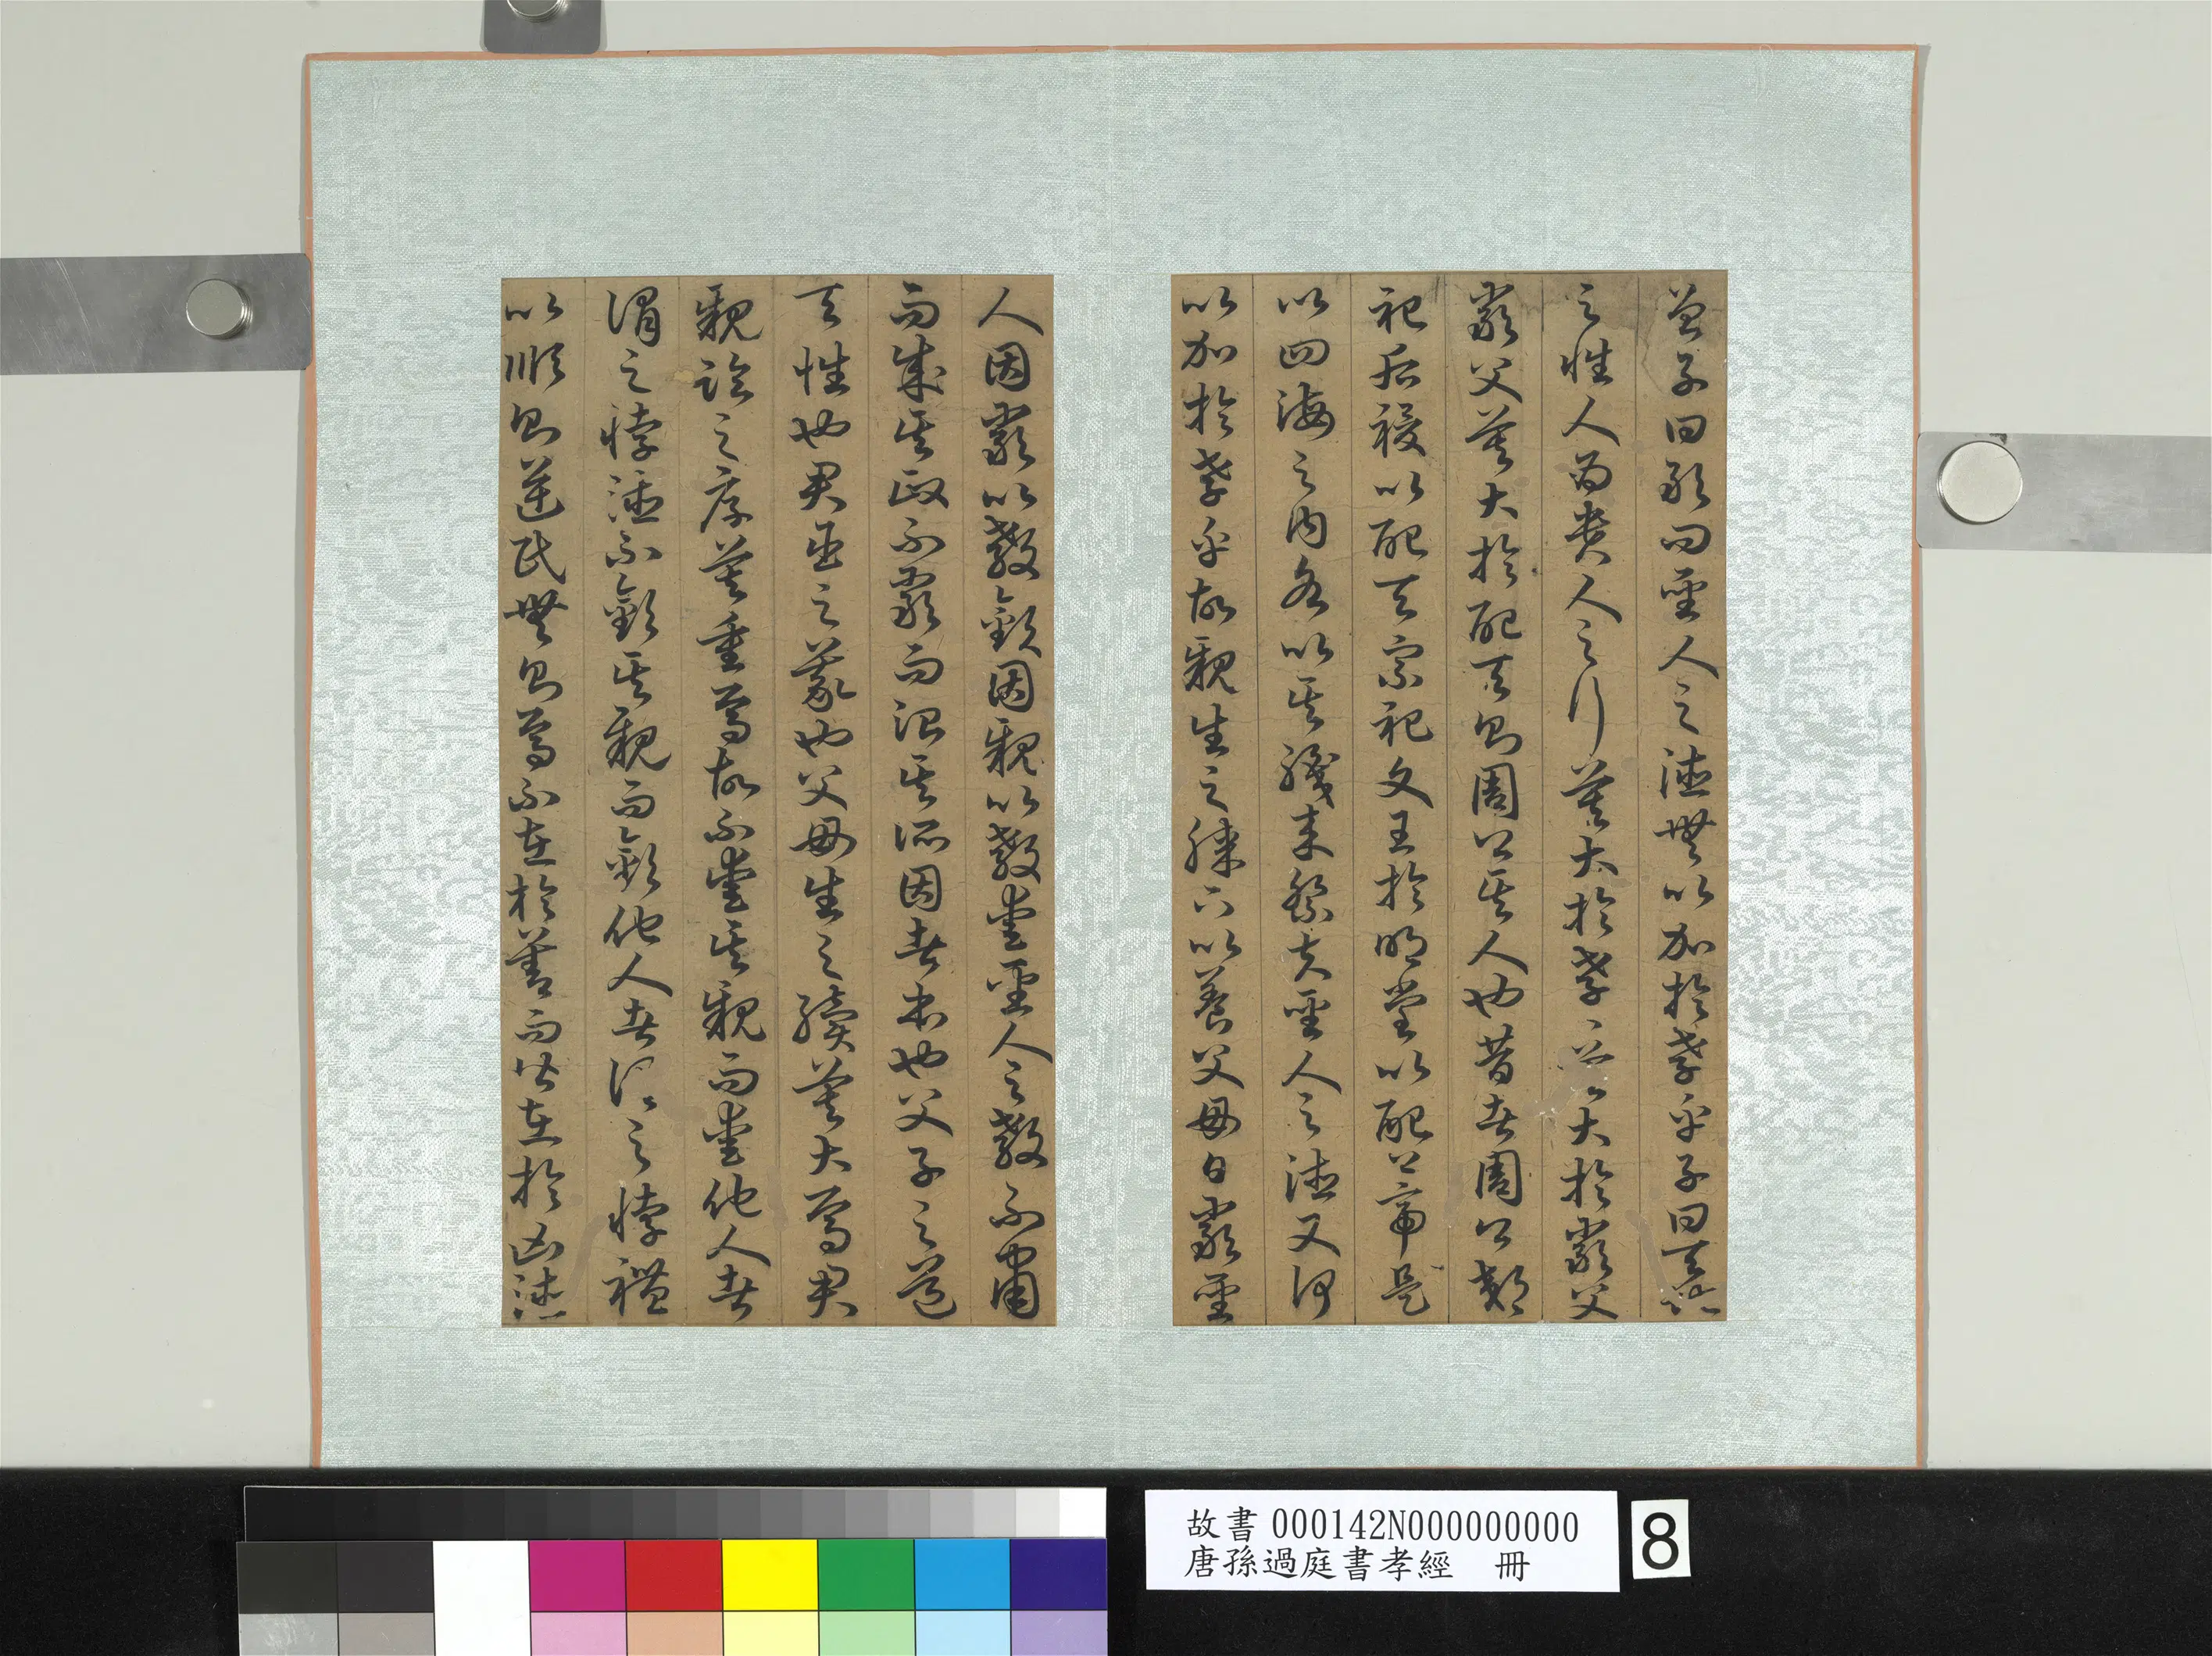 曾子曰敢問聖人之德無以加於孝乎子曰天地
之性人為貴人之行莫大於孝孝莫大於嚴父
嚴父莫大於配天則周公其人也昔者周公郊
祀后稷以配天宗祀文王於明堂以配上帝是
以四海之內各以其職來祭夫聖人之德又何
以加於孝乎故親生之膝下以養父母日嚴聖
人因嚴以教敬因親以教愛聖人之教不肅
而成其政不嚴而治其所因者本也父子之道
天性也君臣之義也父母生之續莫大焉君
親臨之厚莫重焉故不愛其親而愛他人者
謂之悖德不敬其親而敬他人者謂之悖禮
以順則逆民無則焉不在於善而皆在於凶德
故書000142N000000000
唐孫過庭書孝經 冊
8